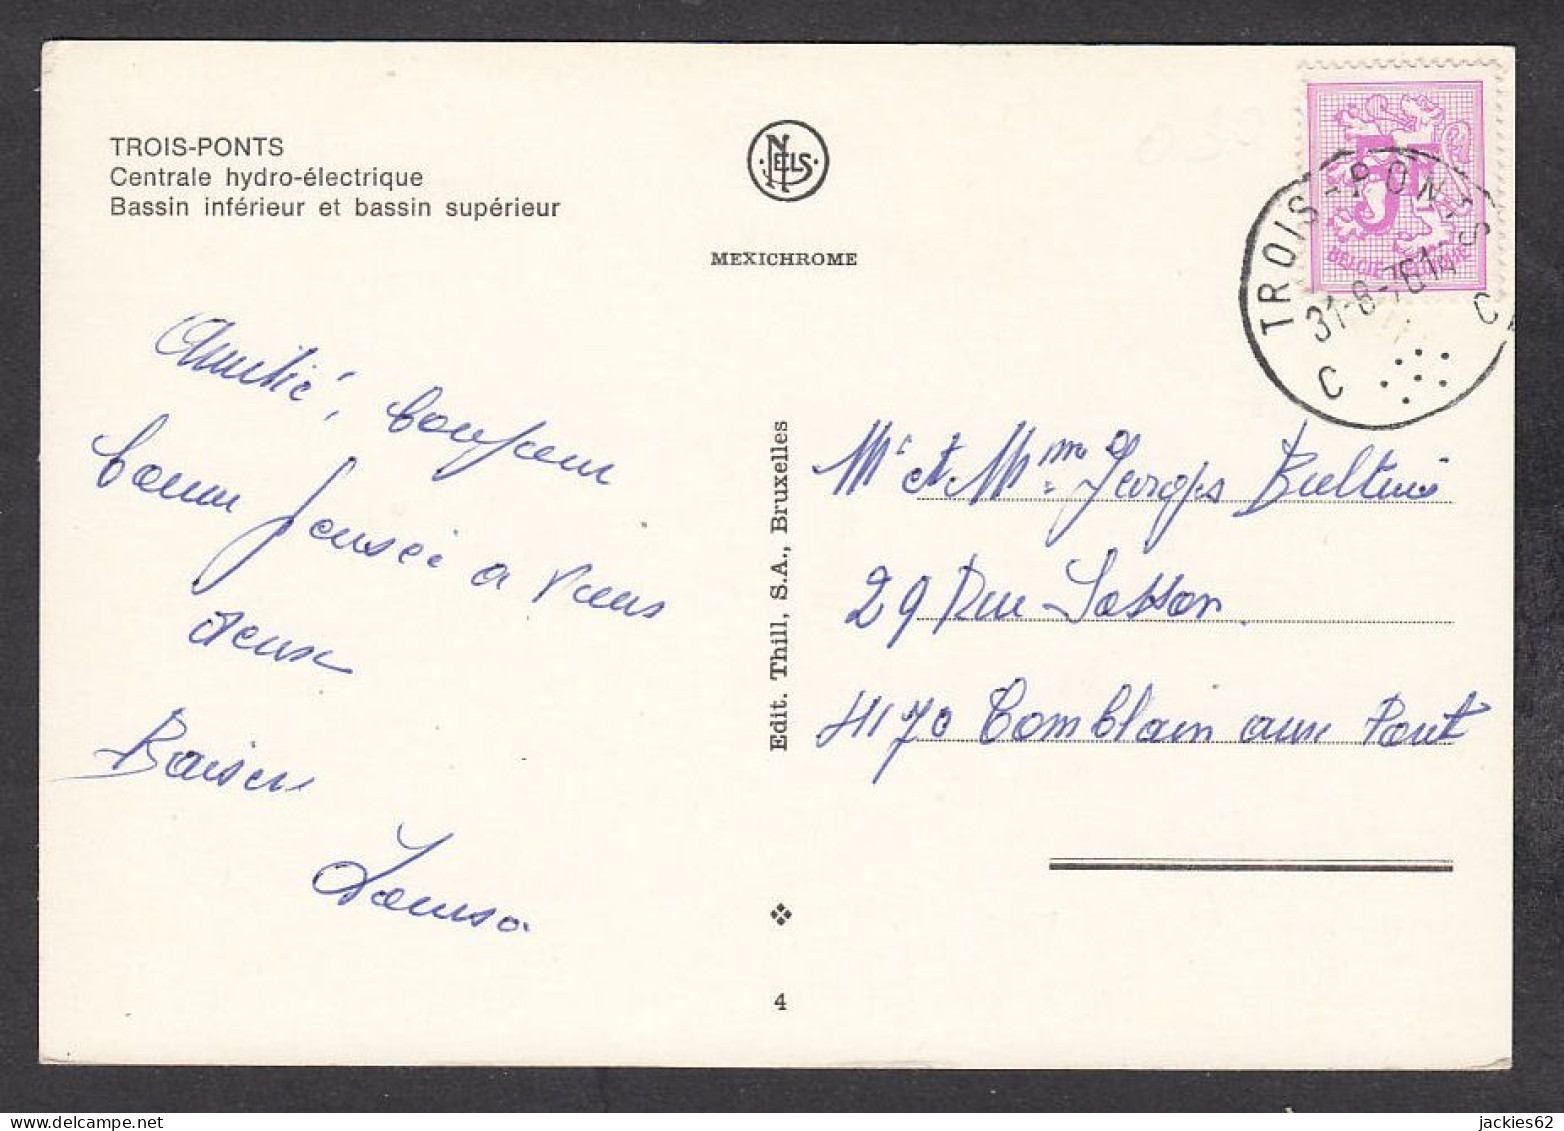 TROIS-PONTS
Centrale hydro-électrique
Bassin inférieur et bassin supérieur
NELS
MEXICHROME
5F
BELGIË
TROIS-PONTS
31-8-76 14
C C
Amitié, bonjour
bonne pensée a vous
deux
Baisers
Mr et Mme Georges
29 Rue
4170 Comblain aux Pont
Edit. Thill, S.A., Bruxelles
4
jackies62